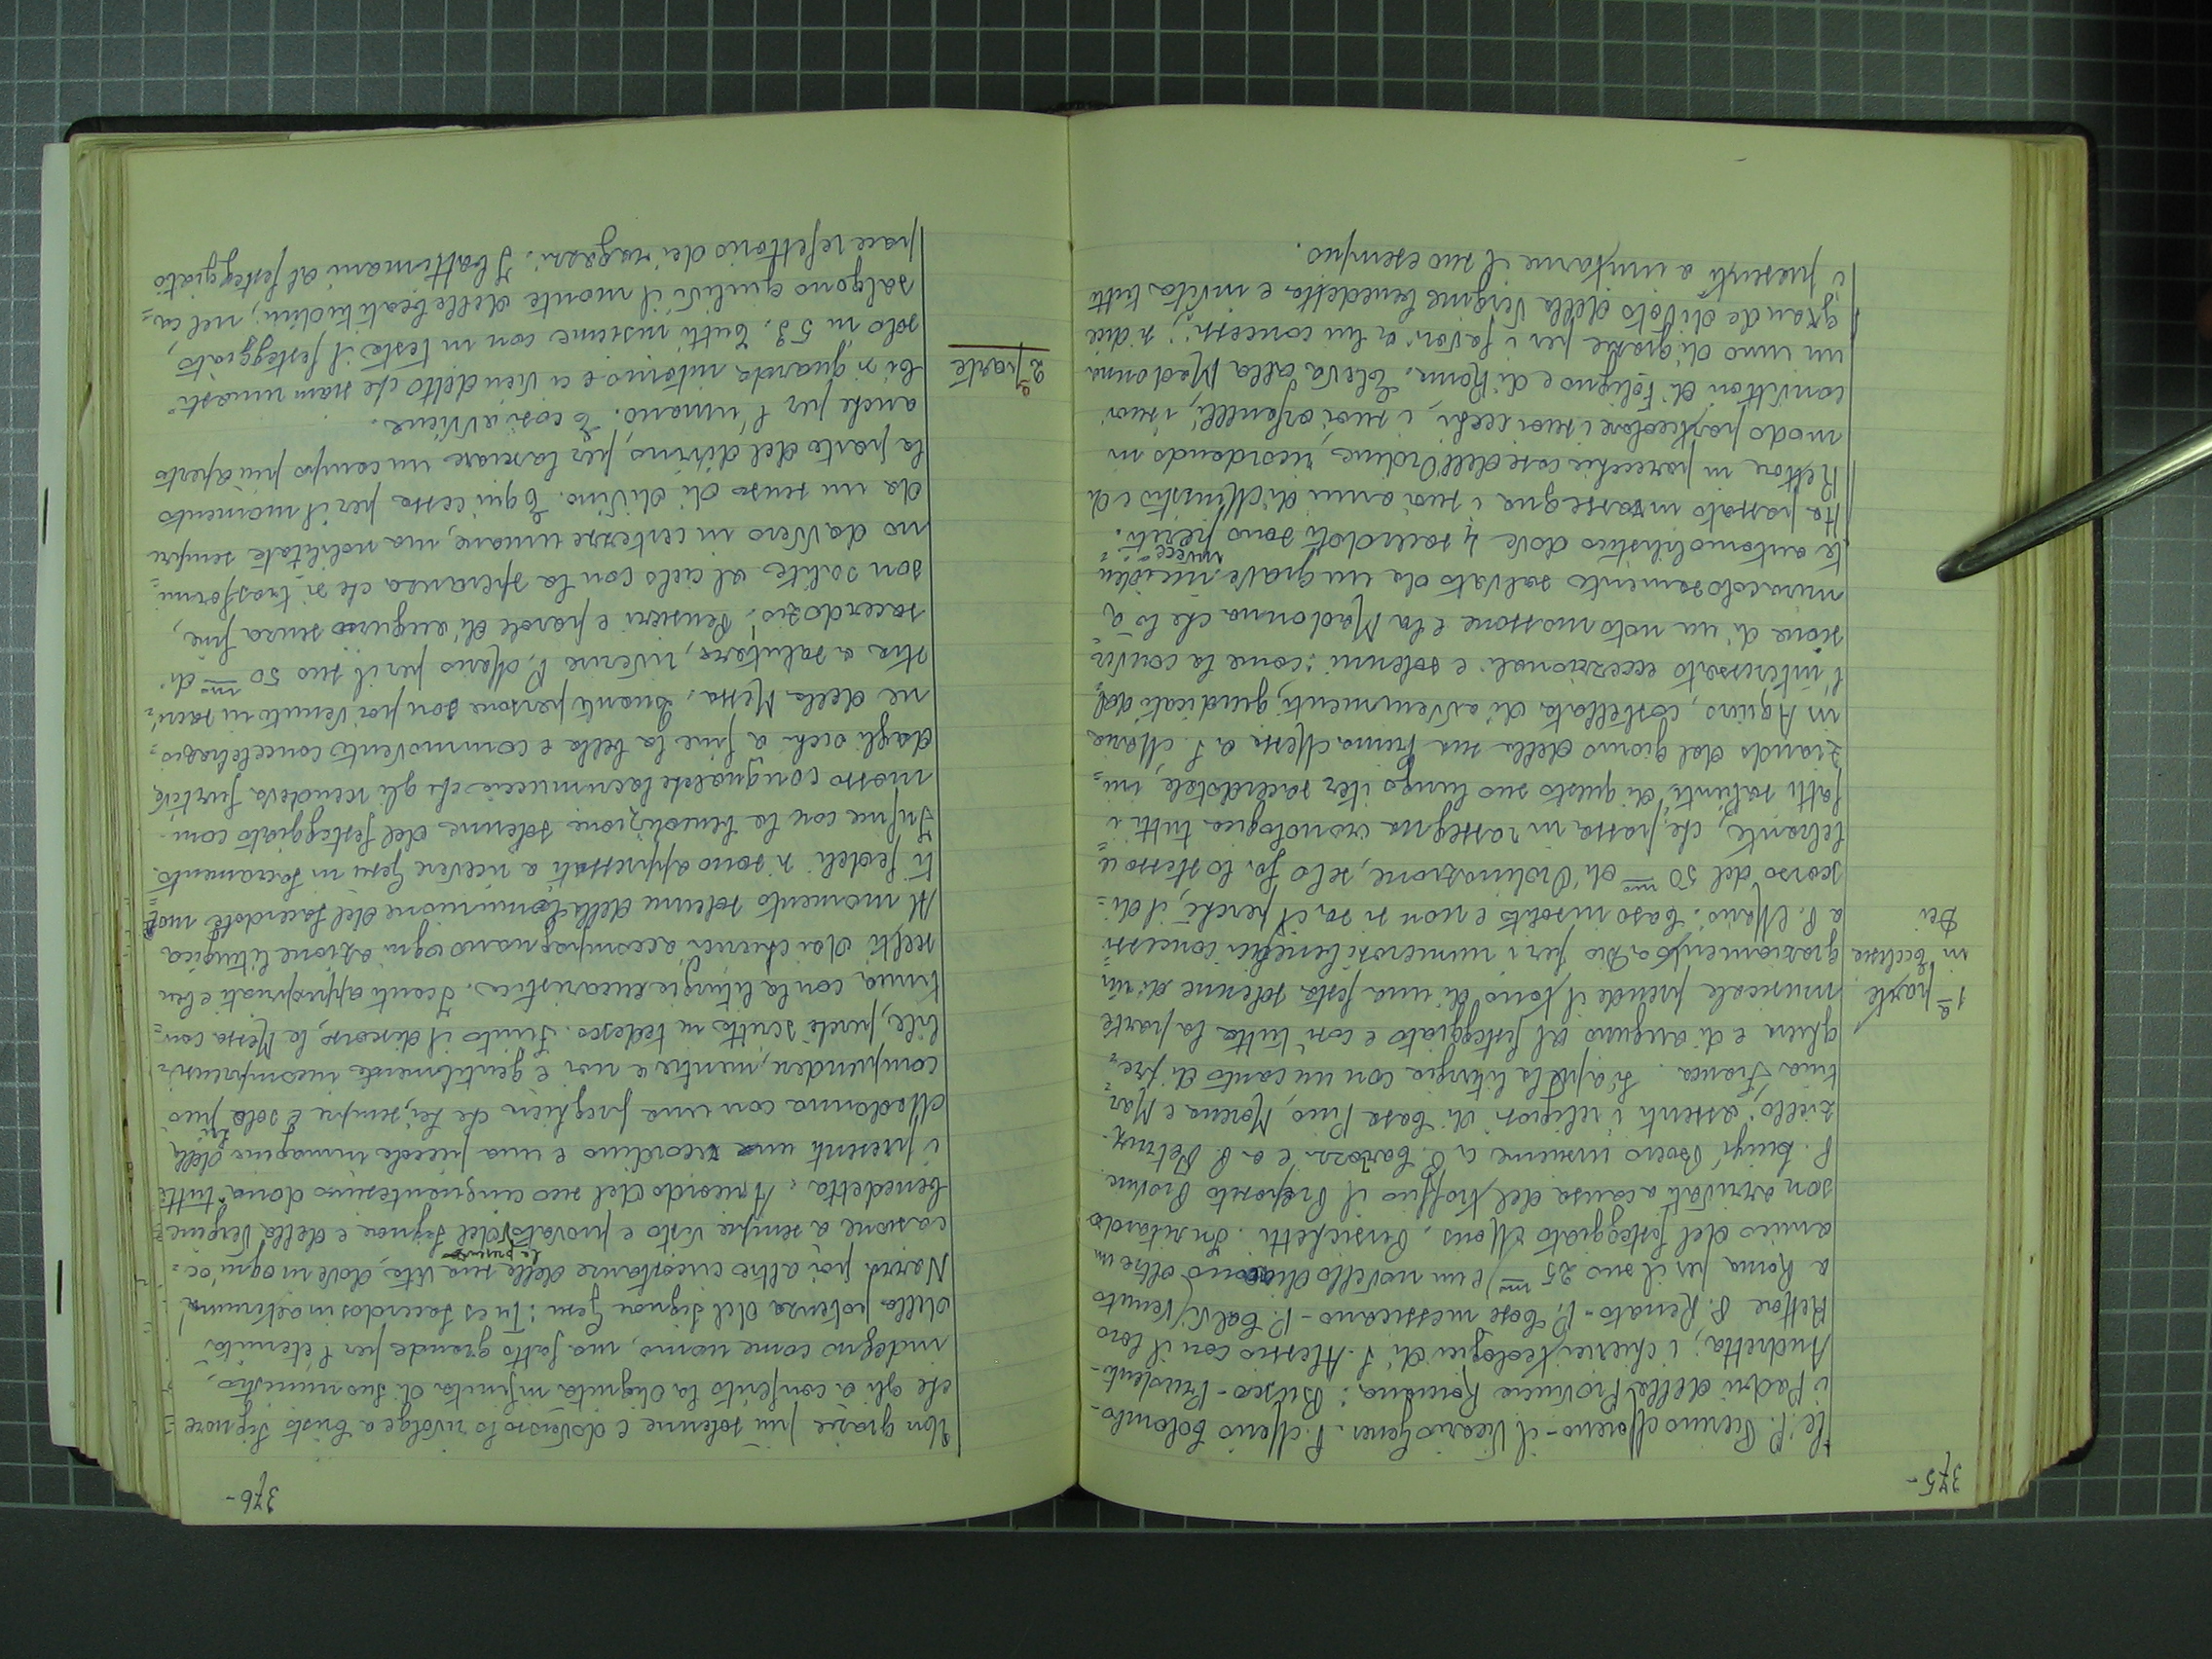 375-
te: P. Pierino Moreno - il Vicario Gener. P. Mario Colombo -
i Padri della Provincia Romana: Busco - Prudente -
Andretta; i chierici teologici di S. Alessio con il loro
Rettore P. Renato - P. Cose messicano - P. Calvi (venuto
a Roma per il suo 25mo) e un novello diacono oltre un
amico del festeggiato Mons. Persichetti. In ritardo
son arrivati a causa del traffico il Preposito Provin.
P. Luigi Bsacro insieme a P. Barozzi e a P. Petruz-
ziello: assenti i religiosi di Casa Pino, Morena e Mar-
tina Franca. S'apre la liturgia con un canto di pre-
ghiera e di augurio al festeggiato e così tutta la parte
1a parte
in Ecclesia
Dei
musicale prende il tono di una festa solenne di rin
graziamento a Dio per i numerosi benefici concessi
a P. Mario: Caso insolito e non si sa il perché, il di-
scorso del 50mo di Ordinazione, selo fa lo stesso ce=
lebrante, che passa in rassegna cronologica tutti i
fatti salienti di questo suo lungo iter sacerdotale, ini=
ziando dal giorno della sua Prima Messa a S. Maria
in Aquiro, costellata di avvenimenti, giudicati dal=
l'interessato eccezionali e solenni: come la conver=
sione di un noto massone e la Madonna che lo à
miracolosamente salvato da un grave inciden
te automobilistico dove invece 4 sacerdoti sono periti.
Ha passato in rassegna i suoi anni di Ministro e di
Rettore in parecchie case dell'Ordine, ricordando in
modo particolare i suoi ciechi, i suoi orfanelli, i suoi
convittori di Foligno e di Roma. Eleva alla Madonna
un inno di grazie per i favori a lui concessi; si dice
grande divoto della Vergine benedetta e invita tutti
i presenti a imitarne il suo esempio.
376-
Un grazie più solenne e doveroso lo rivolge a Cristo Signore
che gli à conferito la dignità infinita di suo ministro,
indegno come uomo, ma fatto grande per l'eternità
dalla potenza del Signore Gesù: Tu es sacerdos in aeternum!
Narra poi altre circostanze della sua vita, dove in ogni oc=
casione à sempre visto e provato la presenza del Signore e della Vergine
benedetta. A ricordo del suo cinquantesimo dona a tutti
i presenti un ricordino e una piccola immagine della
Madonna con una preghiera che lui, sempre e solo può
comprendere, mentre a noi è gentilmente incomprensi-
bile, perché scritta in tedesco. Finito il discorso, la Messa con=
tinua con la liturgia eucaristica. I canti appropriati e ben
scelti dai chierici accompagnano ogni azione liturgica.
Al momento solenne della Comunione del sacerdote mol=
ti fedeli si sono appressati a ricevere Gesù in Sacramento.
Infine con la benedizione solenne del festeggiato com-
mosso con qualche lacrimuccia che gli scendeva furtiva
dagli occhi à fine la bella e commovente concelebrazio=
ne della Messa. Quante persone son poi venute in sacri=
stia a salutare, riverire P. Mario per il suo 50mo di
sacerdozio! Pensieri e parole di augurio senza fine,
son salite al cielo con la speranza che si trasformi=
no davvero in certezze umane, ma nobilitate sempre
da un senso di divino. E qui cessa per il momento
la parte del divino, per lasciare un campo più aperto
anche per l'umano. E così avviene.
2a parte
Ci si guarda intorno e ci vien detto che siam rimasti
solo in 53. Tutti insieme con in testa il festeggiato,
salgono giulivi il monte delle beatitudini, nel ca=
pace refettorio dei ragazzi. I battimani al festeggiato